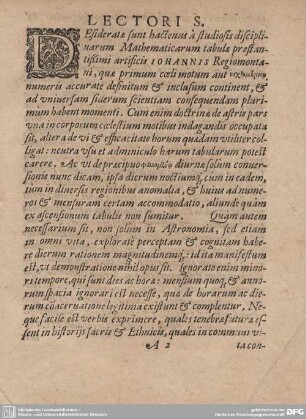 LECTORI S.
DEsideratæ sunt hactenus à studiosis disciplinarum
Mathematicarum tabulæ præstantissimi
artificis IOHANNIS Regiomontani,
quæ primum cœli motum aut
numeris accurate definitum & inclusum continent, &
ad vniuersam siderum scientiam consequendam plurimum
habent momenti. Cum enim doctrinæ de astris pars
vna in corporum cœlestium motibus indagandis occupata
sit, altera de vi & efficacitate horum quædam vtiliter colligat:
neutra vsu et adminiculo harum tabularum potest
carere. Ac vt de præcipuo diurnæ solum conuersionis
nunc dicam, ipsa dierum noctiumq́, cum in eadem,
tum in diuersis regionibus anomalia, & huius ad numeros
& mensuram certam accommodatio, aliunde quàm
ex ascensionum tabulis non sumitur. Quàm autem
necessarium sit, non solum in Astronomia, sed etiam
in omni vita, exploratè perceptam & cognitam habere
dierum rationem magnitudinemq́;: id ita manifestum
est, vt demonstratione nihil opus sit. Ignorato enim minoris
tempore, qui sunt dies ac horæ: mensium quoq, & annorum
spacia ignorari est necesse, quæ de horarum ac dierum
coaceruatione legitima existunt & complentur. Neque
facilè est verbis exprimere, quales tenebræ futuræ essent
in historijs sacris & Ethnicis, quales in communi vi-
A 2 ta con-